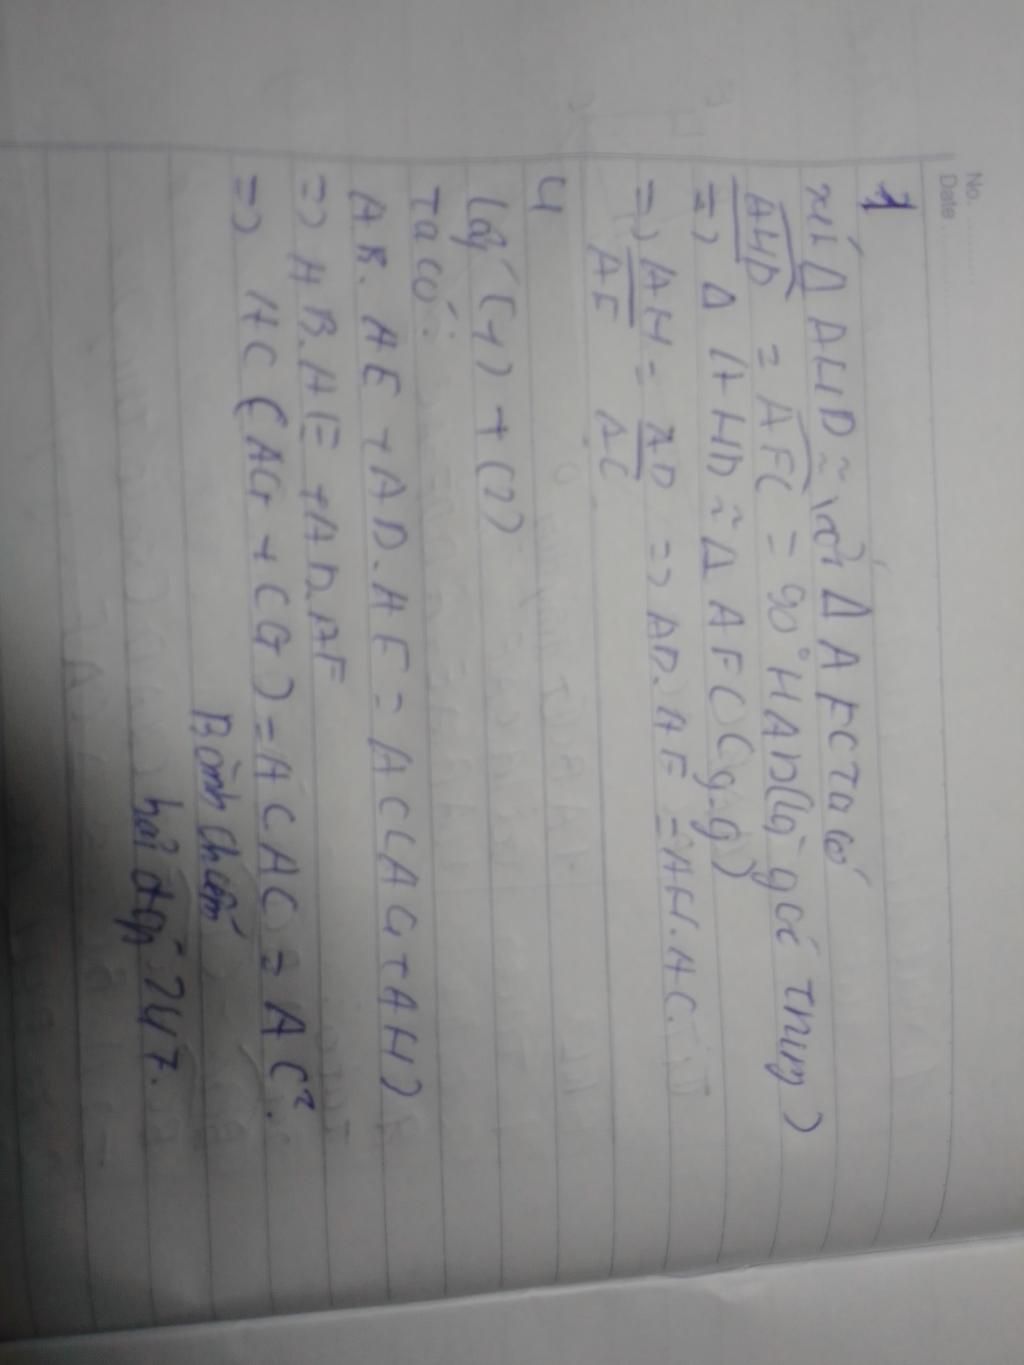 No.
Date
1
xét Δ AHD ~ với Δ AFC Ta có
AHD = AFC = 90° HAD (là góc trung)
=> Δ AHD ~ Δ AFC (g.g)
=> AH/AF = AD/AC => AD. AF = AH. AC.
4
lấy (1) + (2)
Ta có:
AB. AE + AD. AF = AC (AG + AH)
=> AB. AE + AD. AF
=> AC (AG + CG) = AC AC = AC².
Bình chuẩn
hỏi đáp 247.